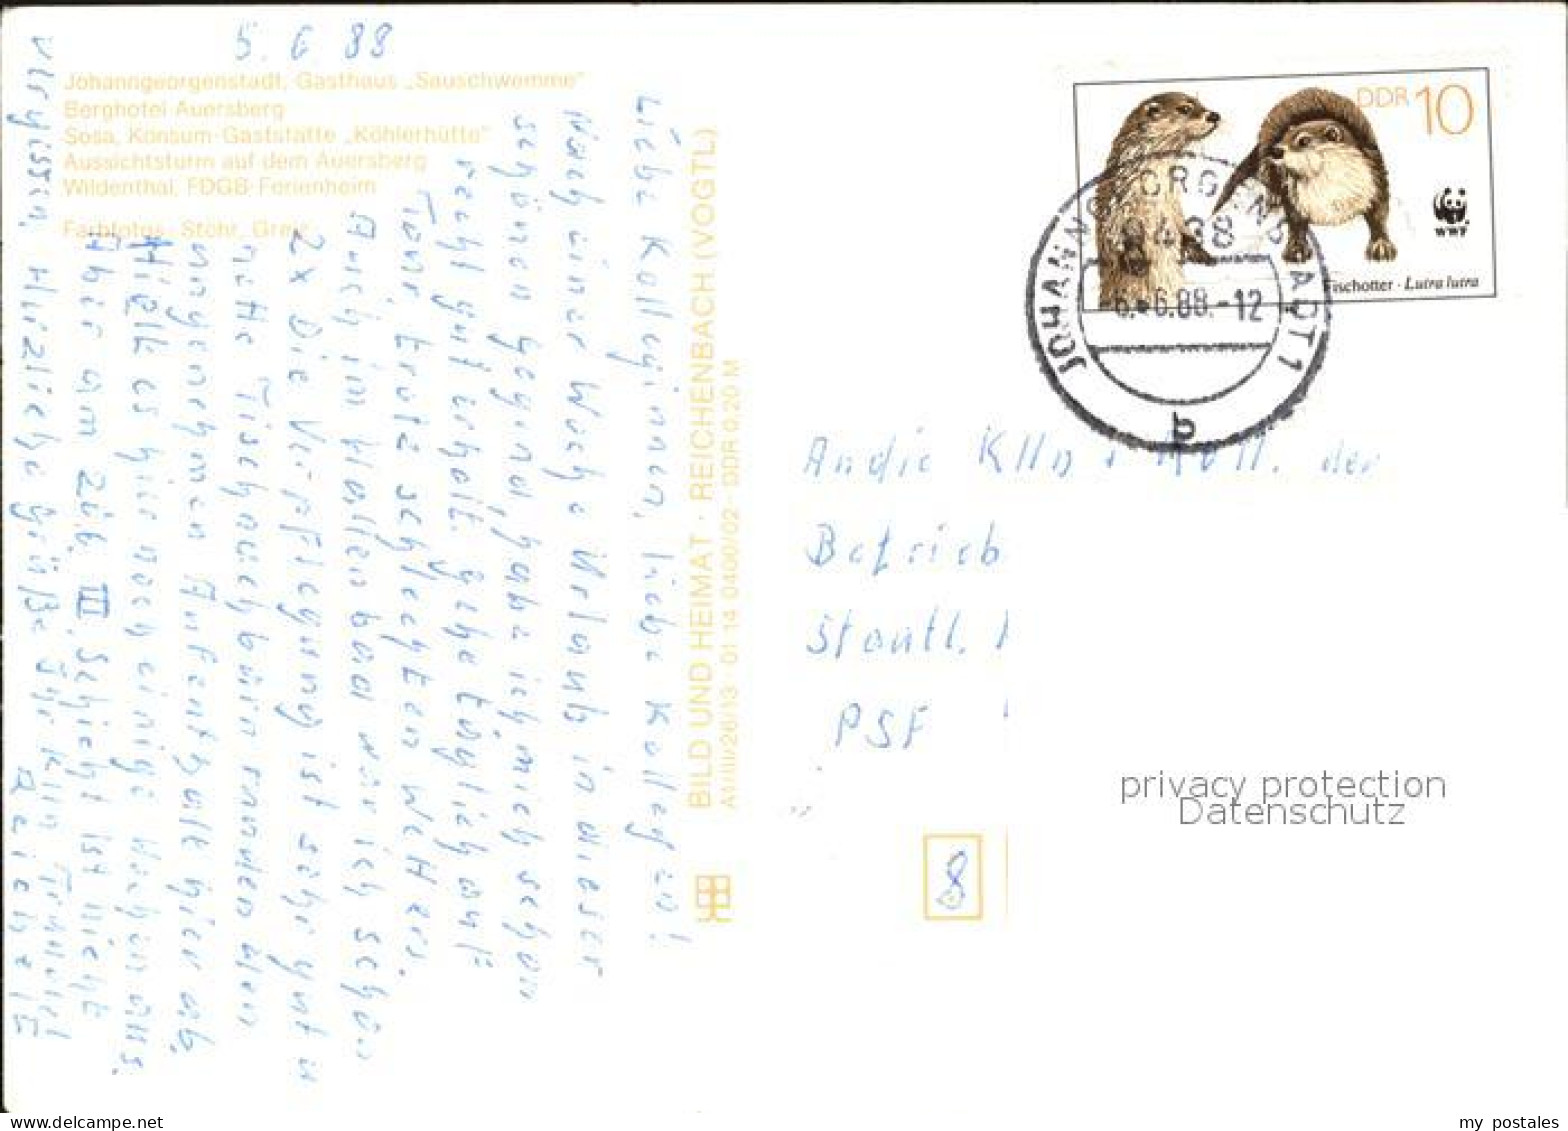 5. 6 88
Johanngeorgenstadt, Gasthaus „Sauschwemme"
Berghotel Auersberg
Sosa, Konsum-Gaststätte „Köhlerhütte"
Aussichtsturm auf dem Auersberg
Wildenthal, FDGB-Ferienheim
Farbfotos: Stöhr, Greiz
Liebe Kolleginnen, liebe Kollegen!
Nach einer Woche Urlaub in dieser
schönen Gegend, habe ich mich schon
recht gut erholt. Gehe täglich auf
Tour, trotz schlechten Wetters.
Auch im Hallenbad war ich schon
2x Die Verpflegung ist sehr gut u
nette Tischnachbarn runden den
angenehmen Aufenthalt hier ab.
Hielt es hier noch einige Wochen aus.
Aber am 26.6. III. Schicht ist nicht
vergessen. Herzliche Grüße Ihr Klln
BILD UND HEIMAT · REICHENBACH (VOGTL)
A1/III/26/13 · 01 14 0406/02 · DDR 0,20 M
DDR 10
WWF
Fischotter · Lutra lutra
JOHANNGEORGENSTADT 1
9438
-6.-6.88.-12
b
An die Klln + Koll. der
Betrieb
Staatl.
PSF
8
privacy protection
Datenschutz
my postales